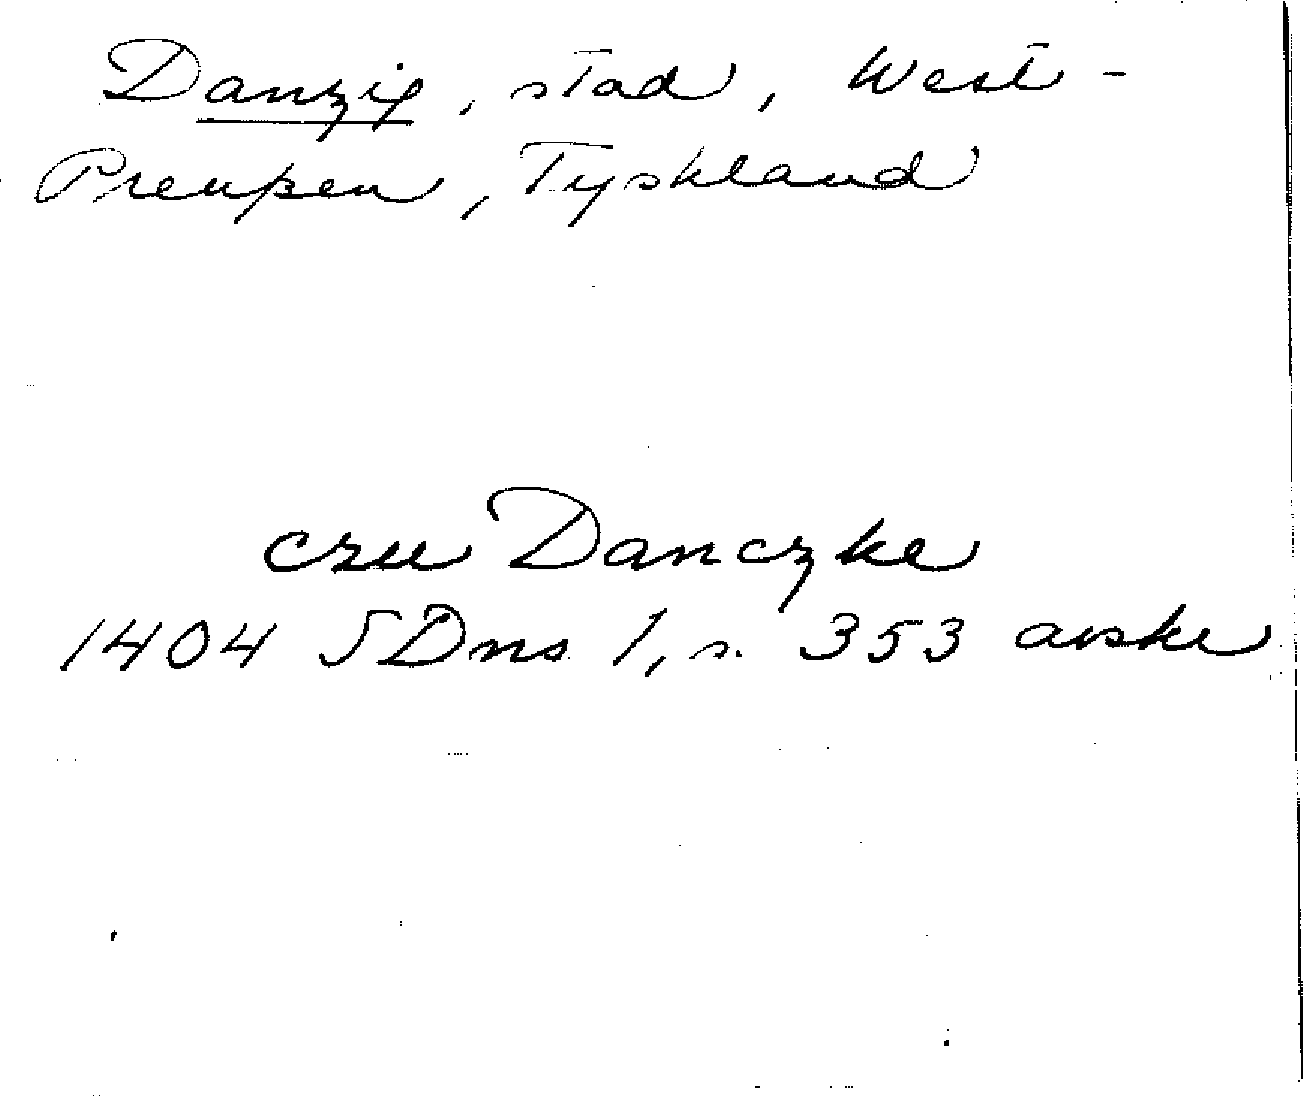 Danzig, stad, West-
Preußen, Tyskland
czu Danczke
1404 SDns 1, s. 353 avskr